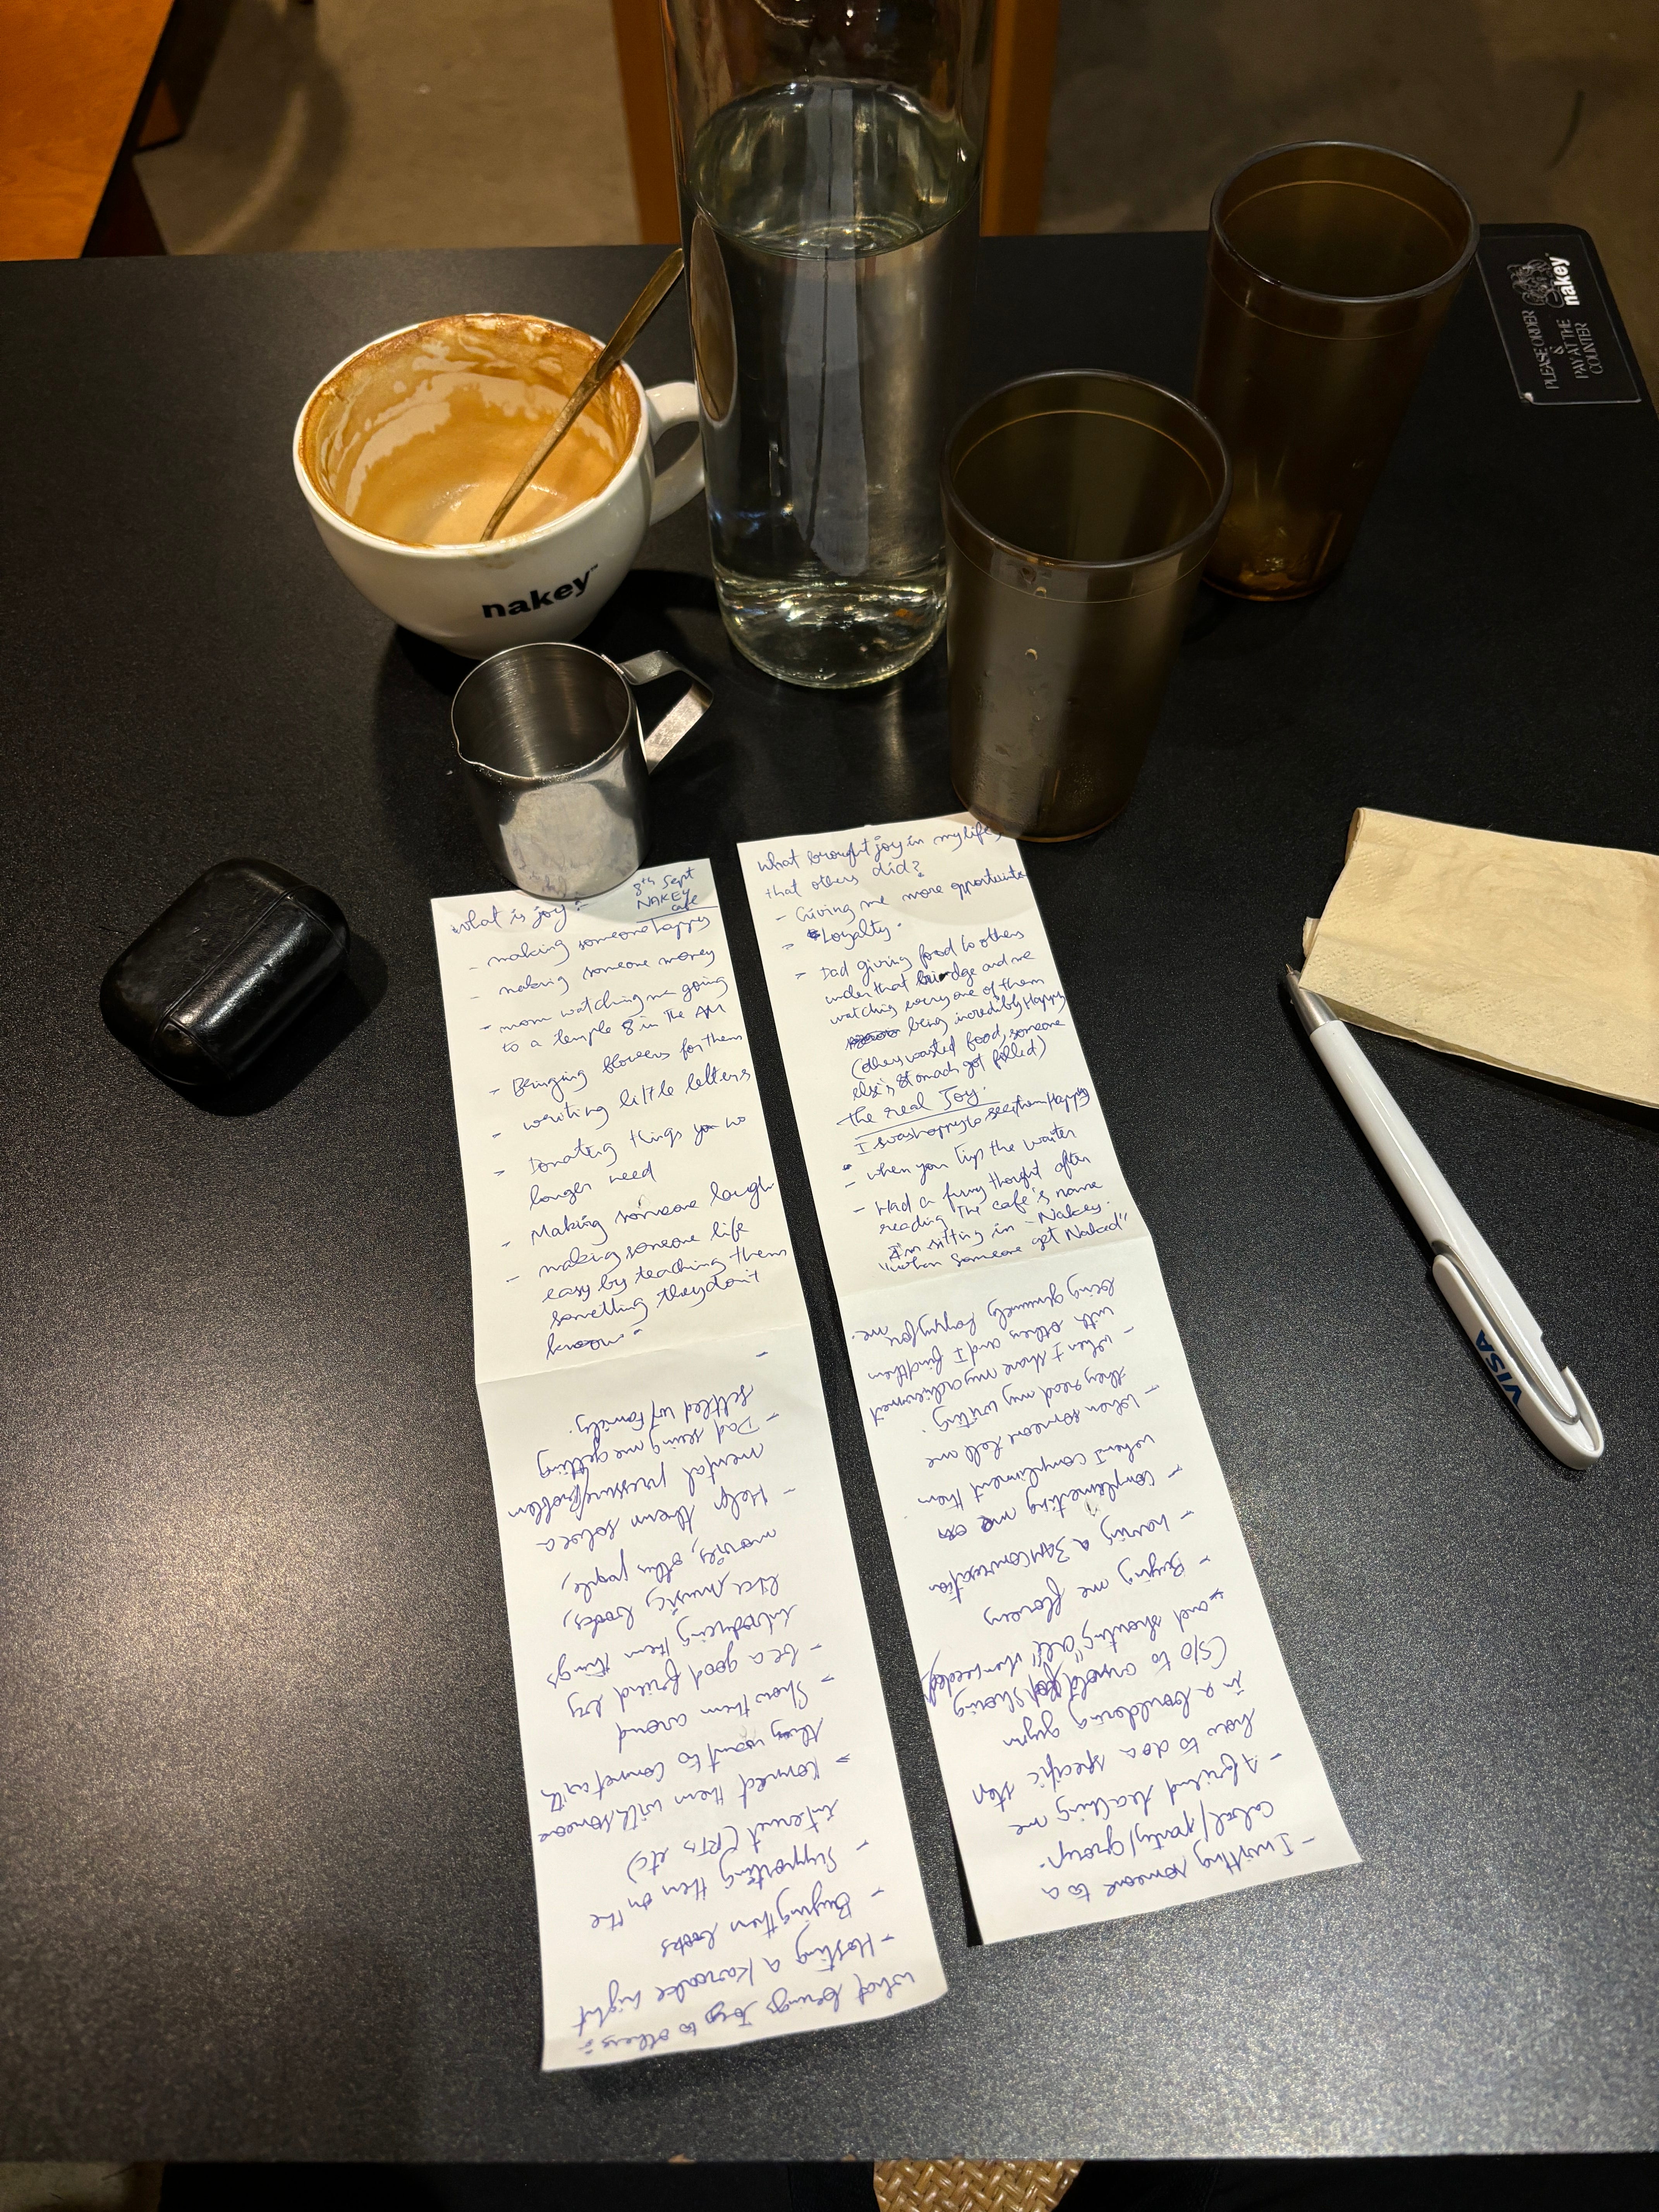 nakey
PLEASE ORDER
&
PAY AT THE
COUNTER
nakey
8th Sept
NAKEY
cafe
what is joy :-
- making someone happy
- making someone money
- mom watching me going
to a temple 8 in the AM
- Bringing flowers for them
- writing little letters
- Donating things you no
longer need
- Making someone laugh
- making someone life
easy by teaching them
something they don't
know -
what brings Joy to others :-
- Hosting a Karoake night
- Buying them books
- Supporting them on the
internet (RTs etc)
- Connect them with someone
they want to connect with
- Show them around
- be a good friend by
introducing them things
like music, books,
movies, other people,
- Help them solve a
mental pressure/problem
- Dad seeing me getting
settled w/ Family.
-
What brought joy in my life,
that others did?
- Giving me more opportunities
- Loyalty.
- Dad giving food to others
under that bridge and me
watching everyone of them
being incredibly Happy
(others wasted food, someone
else's stomach got filled)
The real Joy.
I was happy to see them Happy
- when you tip the waiter
- Had a funny thought after
reading the cafe's name
I'm sitting in - Nakey.
"when someone get Naked"
- Inviting someone to a
cabal/party/group.
- A friend teaching me
how to do a specific step
in a bouldering gym
(S/O to arnold for showing
and shouting "alle" when needed)
- Buying me flowers
- having a 3AM conversation
- Complementing me or
when I compliment them
- when someone tell me
they read my writing.
- when I share my achievement
with others and I find them
being genuinely happy for me.
VISA